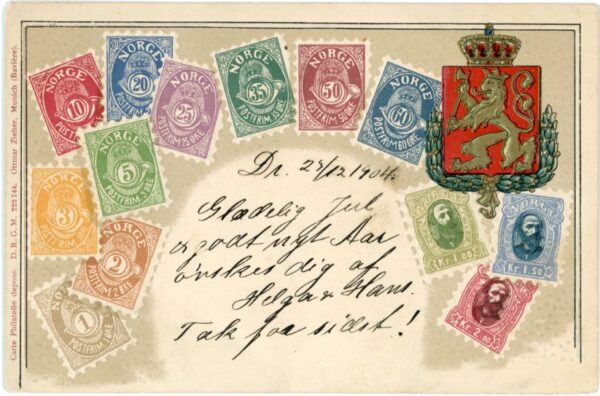 Carte Philatelie depose. D. R. G. M. 222744. Ottmar Zieher, Munich (Bavière).
NORGE
10
POSTFRIM
NORGE
20
POSTFRIM
NORGE
25
POSTFRIM 25 ØRE
NORGE
35
POSTFRIM 35 ØRE
NORGE
50
POSTFRIM 50 ØRE
NORGE
60
POSTFRIM 60 ØRE
NORGE
5
POSTFRIM 5 ØRE
NORGE
3
POSTFRIM
NORGE
2
POSTFRIM 2 ØRE
1
POSTFRIM 1 ØRE
Dr. 23/12 1904.
Glædelig Jul
og godt nyt Aar
ønskes dig af
Helga & Hans.
Tak for sidst!
Kr 1.00
NORGE
Kr 1.50
Kr 2.00